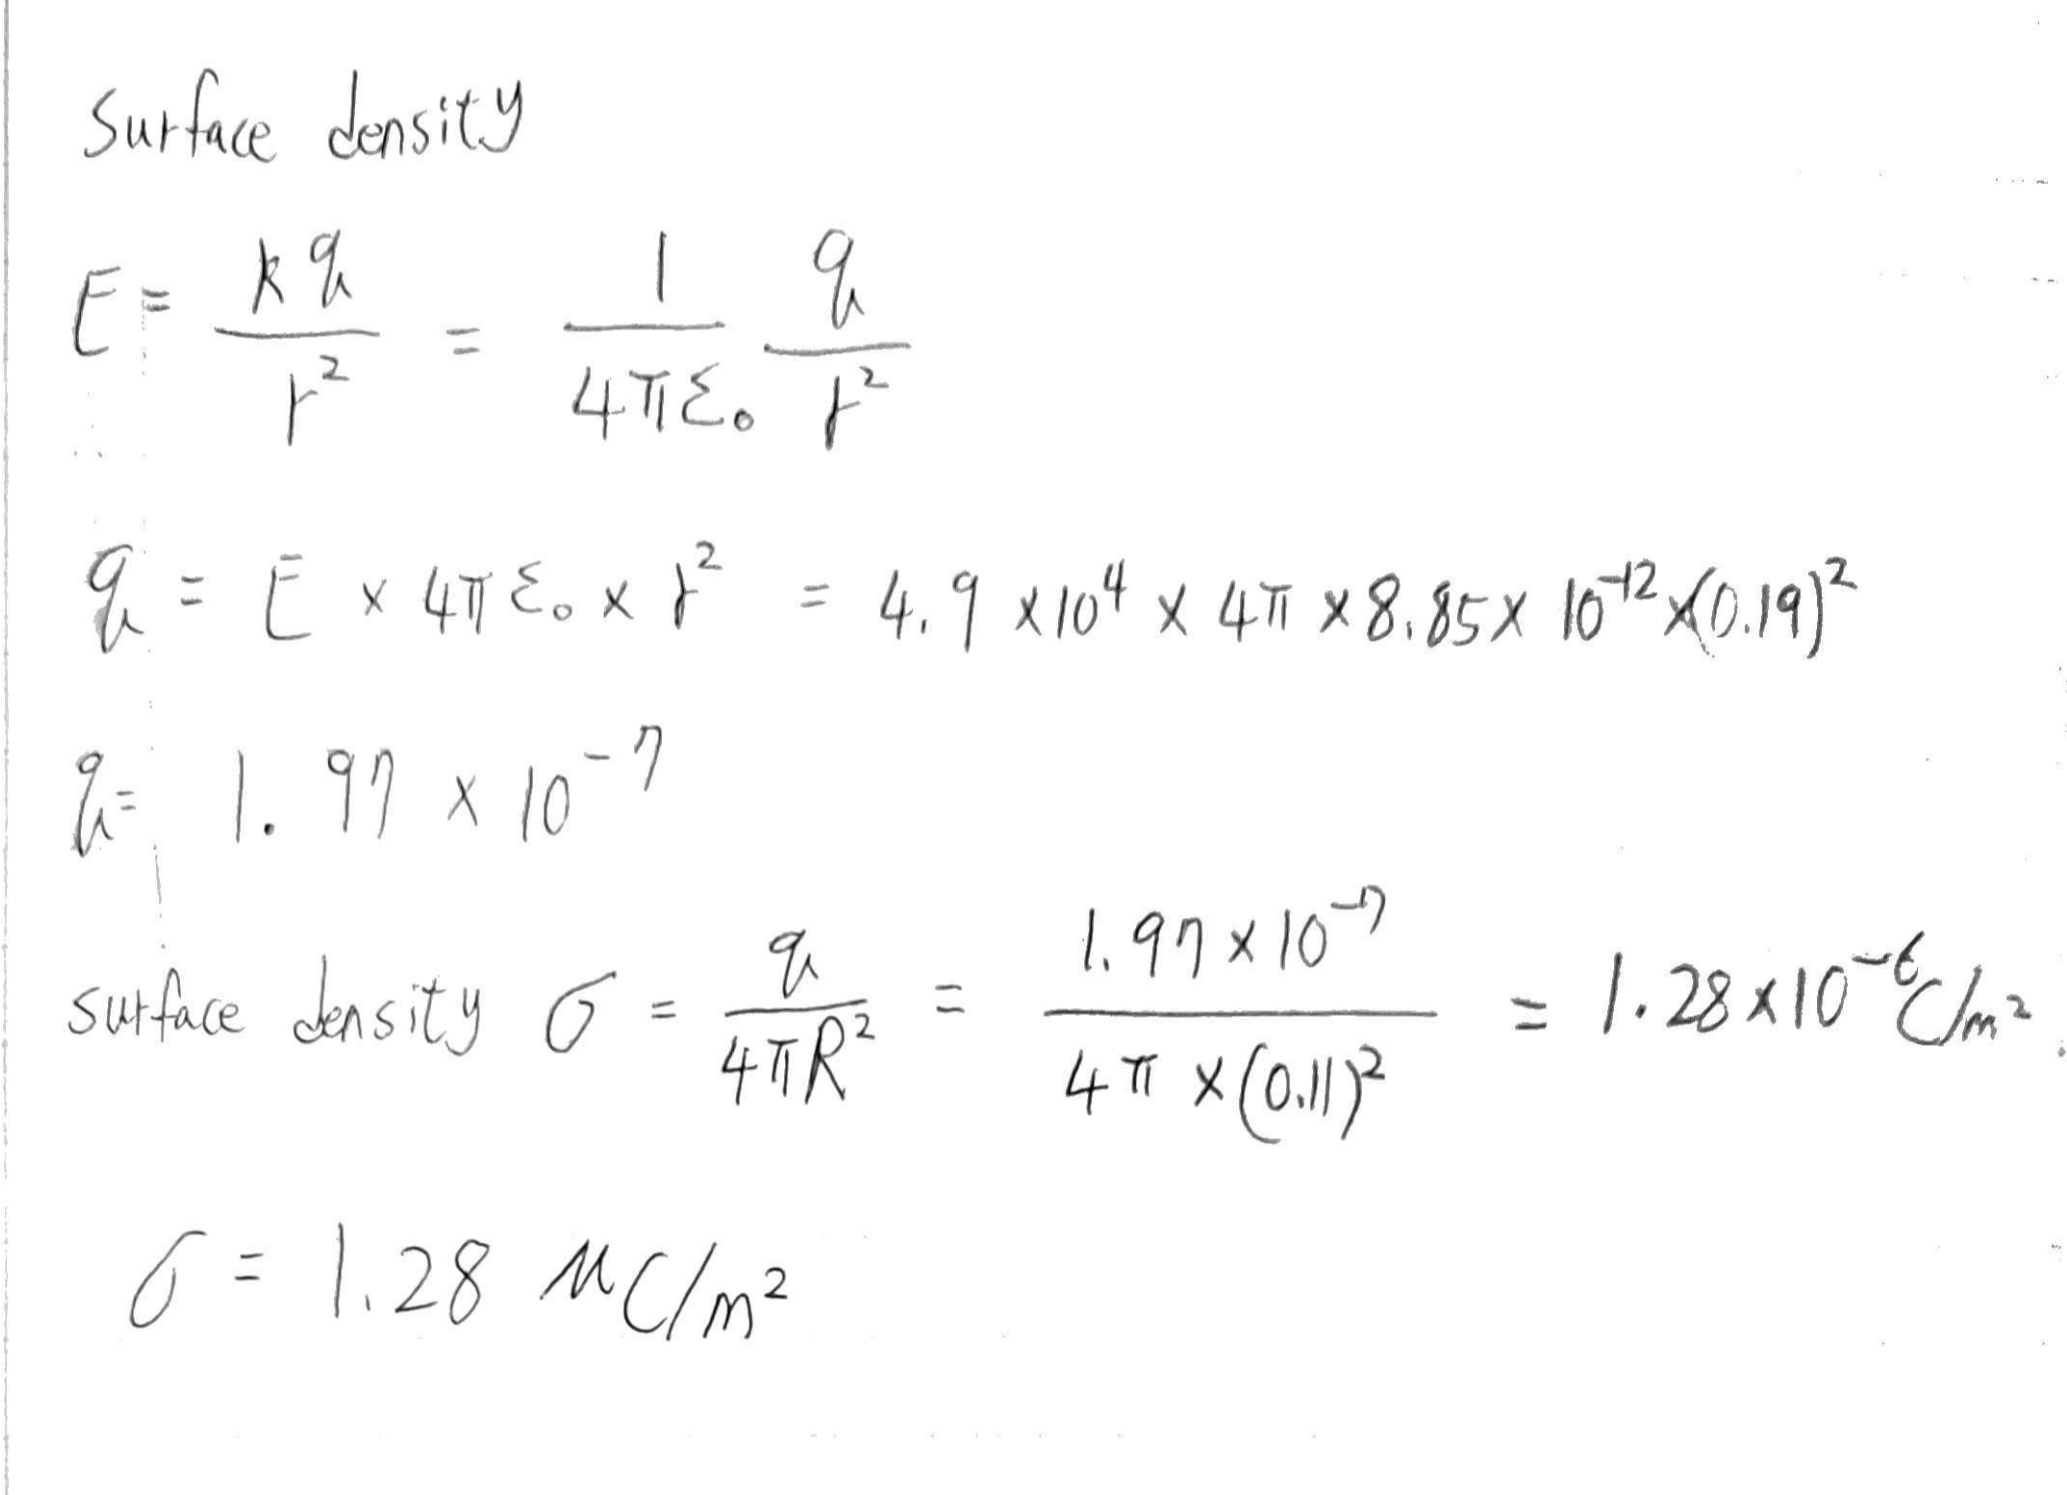 Surface density
E = kq/r² = 1/4πε₀ q/r²
q = E × 4πε₀ × r² = 4.9 ×10⁴ × 4π × 8.85× 10⁻¹² ×(0.19)²
q = 1.97 × 10⁻⁷
surface density σ = q/4πR² = 1.97×10⁻⁷/4π ×(0.11)² = 1.28×10⁻⁶C/m².
σ = 1.28 μC/m²